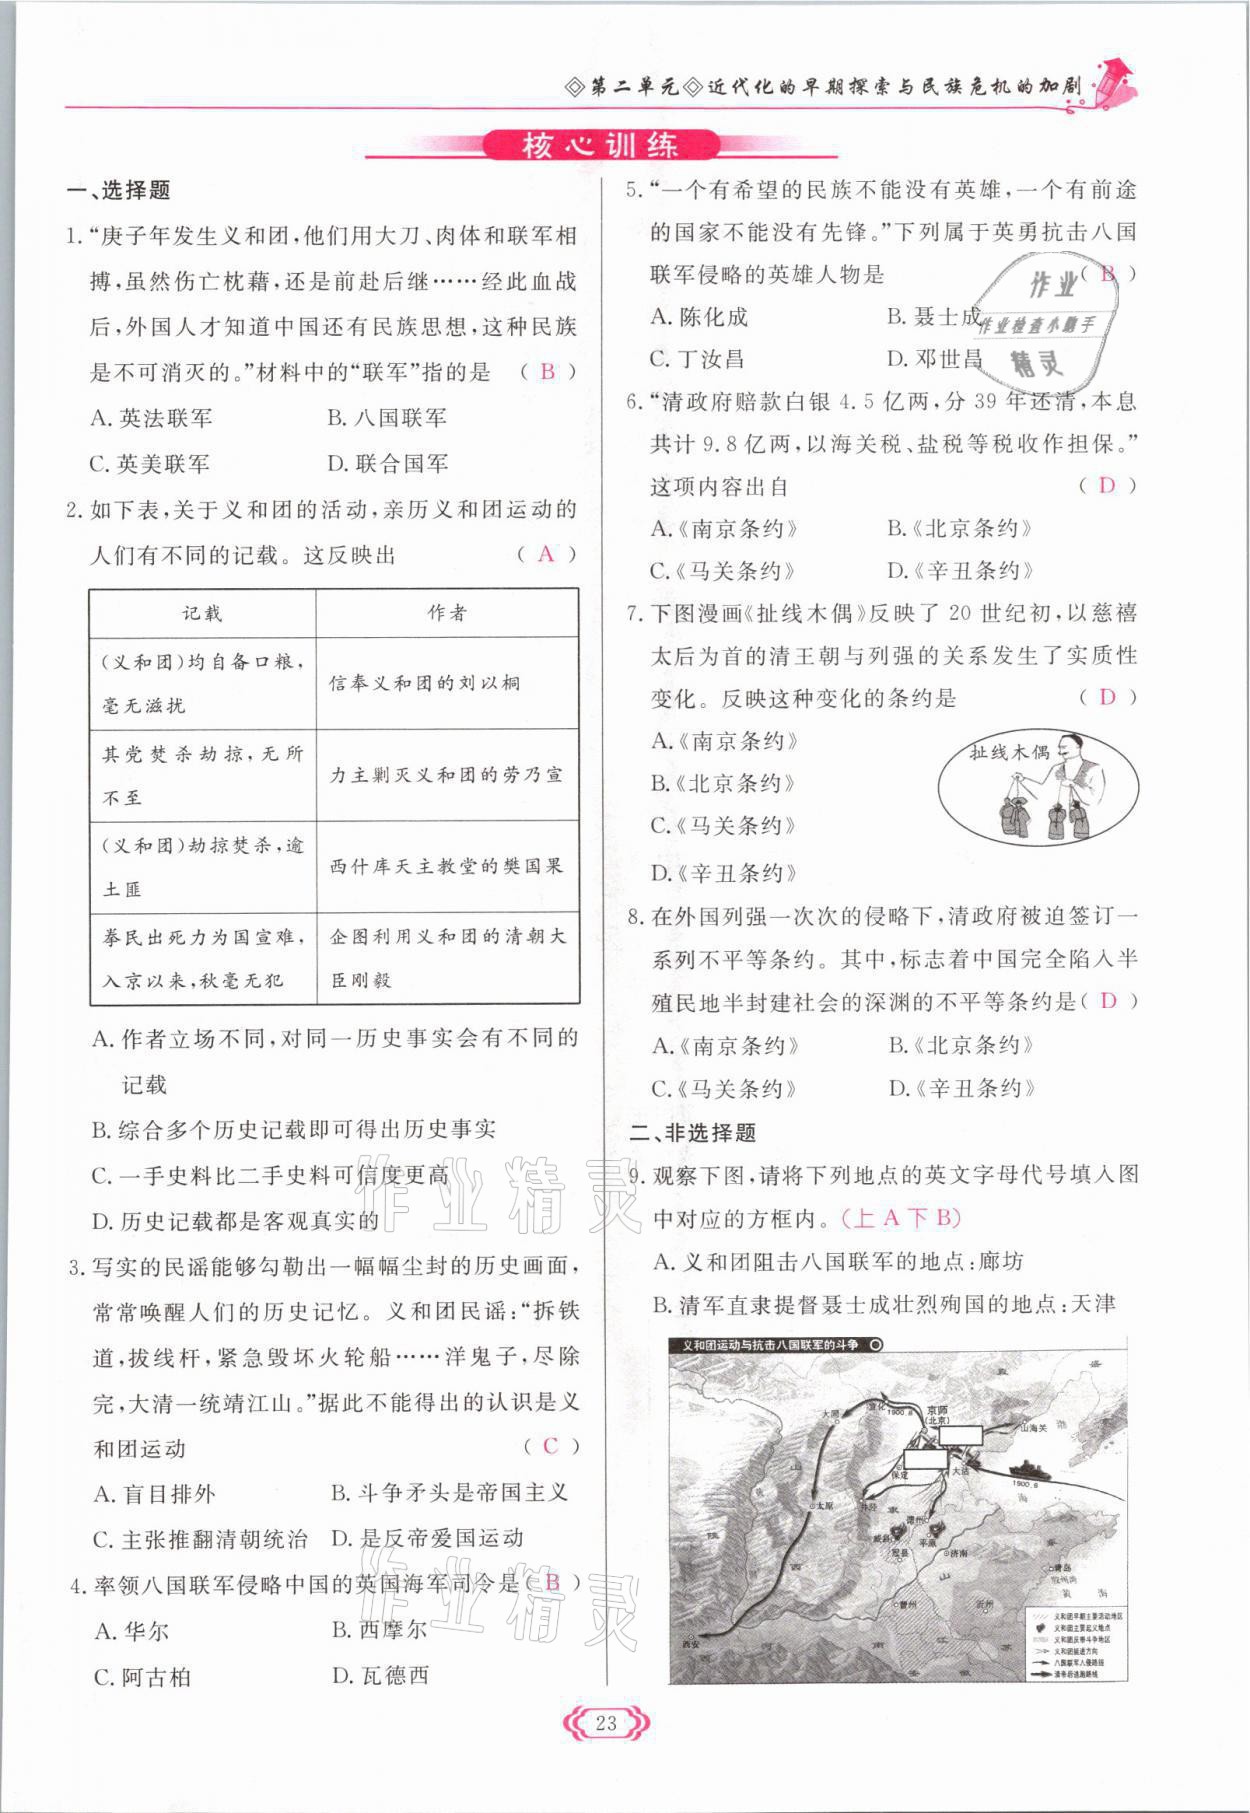 ◇第二单元◇近代化的早期探索与民族危机的加剧
核心训练
一、选择题
1.“庚子年发生义和团,他们用大刀、肉体和联军相
搏,虽然伤亡枕藉,还是前赴后继……经此血战
后,外国人才知道中国还有民族思想,这种民族
是不可消灭的。”材料中的“联军”指的是 ( B )
A. 英法联军 B. 八国联军
C. 英美联军 D. 联合国军
2. 如下表,关于义和团的活动,亲历义和团运动的
人们有不同的记载。这反映出 ( A )
记载 作者
(义和团)均自备口粮,
毫无滋扰
信奉义和团的刘以桐
其党焚杀劫掠,无所
不至
力主剿灭义和团的劳乃宣
(义和团)劫掠焚杀,逾
土匪
西什库天主教堂的樊国果
拳民出死力为国宣难,
入京以来,秋毫无犯
企图利用义和团的清朝大
臣刚毅
A. 作者立场不同,对同一历史事实会有不同的
记载
B. 综合多个历史记载即可得出历史事实
C. 一手史料比二手史料可信度更高
D. 历史记载都是客观真实的
3. 写实的民谣能够勾勒出一幅幅尘封的历史画面,
常常唤醒人们的历史记忆。义和团民谣:“拆铁
道,拔线杆,紧急毁坏火轮船……洋鬼子,尽除
完,大清一统靖江山。”据此不能得出的认识是义
和团运动 ( C )
A. 盲目排外 B. 斗争矛头是帝国主义
C. 主张推翻清朝统治 D. 是反帝爱国运动
4. 率领八国联军侵略中国的英国海军司令是( B )
A. 华尔 B. 西摩尔
C. 阿古柏 D. 瓦德西
5.“一个有希望的民族不能没有英雄,一个有前途
的国家不能没有先锋。”下列属于英勇抗击八国
联军侵略的英雄人物是 ( B )
A. 陈化成 B. 聂士成
C. 丁汝昌 D. 邓世昌
作业
作业检查小助手
精灵
6.“清政府赔款白银 4.5 亿两,分 39 年还清,本息
共计 9.8 亿两,以海关税、盐税等税收作担保。”
这项内容出自 ( D )
A.《南京条约》 B.《北京条约》
C.《马关条约》 D.《辛丑条约》
7. 下图漫画《扯线木偶》反映了 20 世纪初,以慈禧
太后为首的清王朝与列强的关系发生了实质性
变化。反映这种变化的条约是 ( D )
A.《南京条约》
B.《北京条约》
C.《马关条约》
D.《辛丑条约》
扯线木偶
8. 在外国列强一次次的侵略下,清政府被迫签订一
系列不平等条约。其中,标志着中国完全陷入半
殖民地半封建社会的深渊的不平等条约是( D )
A.《南京条约》 B.《北京条约》
C.《马关条约》 D.《辛丑条约》
二、非选择题
9. 观察下图,请将下列地点的英文字母代号填入图
中对应的方框内。(上 A 下 B)
A. 义和团阻击八国联军的地点:廊坊
B. 清军直隶提督聂士成壮烈殉国的地点:天津
义和团运动与抗击八国联军的斗争
盛
直
渤
大同
宣化
1900.8
京师
(北京)
山海关
保定
大沽
1900.6
海
山
太原
井陉
隶
德州
威县
平原
冠县
济南
陕
西
山
青岛
胶州湾
黄 海
曹州
沂州
西安
河 南
江
苏
安
徽
义和团早期主要活动地区
义和团主要起义地点
义和团反帝斗争地区
义和团挺进方向
八国联军入侵路线
清帝后逃跑路线
作业精灵
作业精灵
23